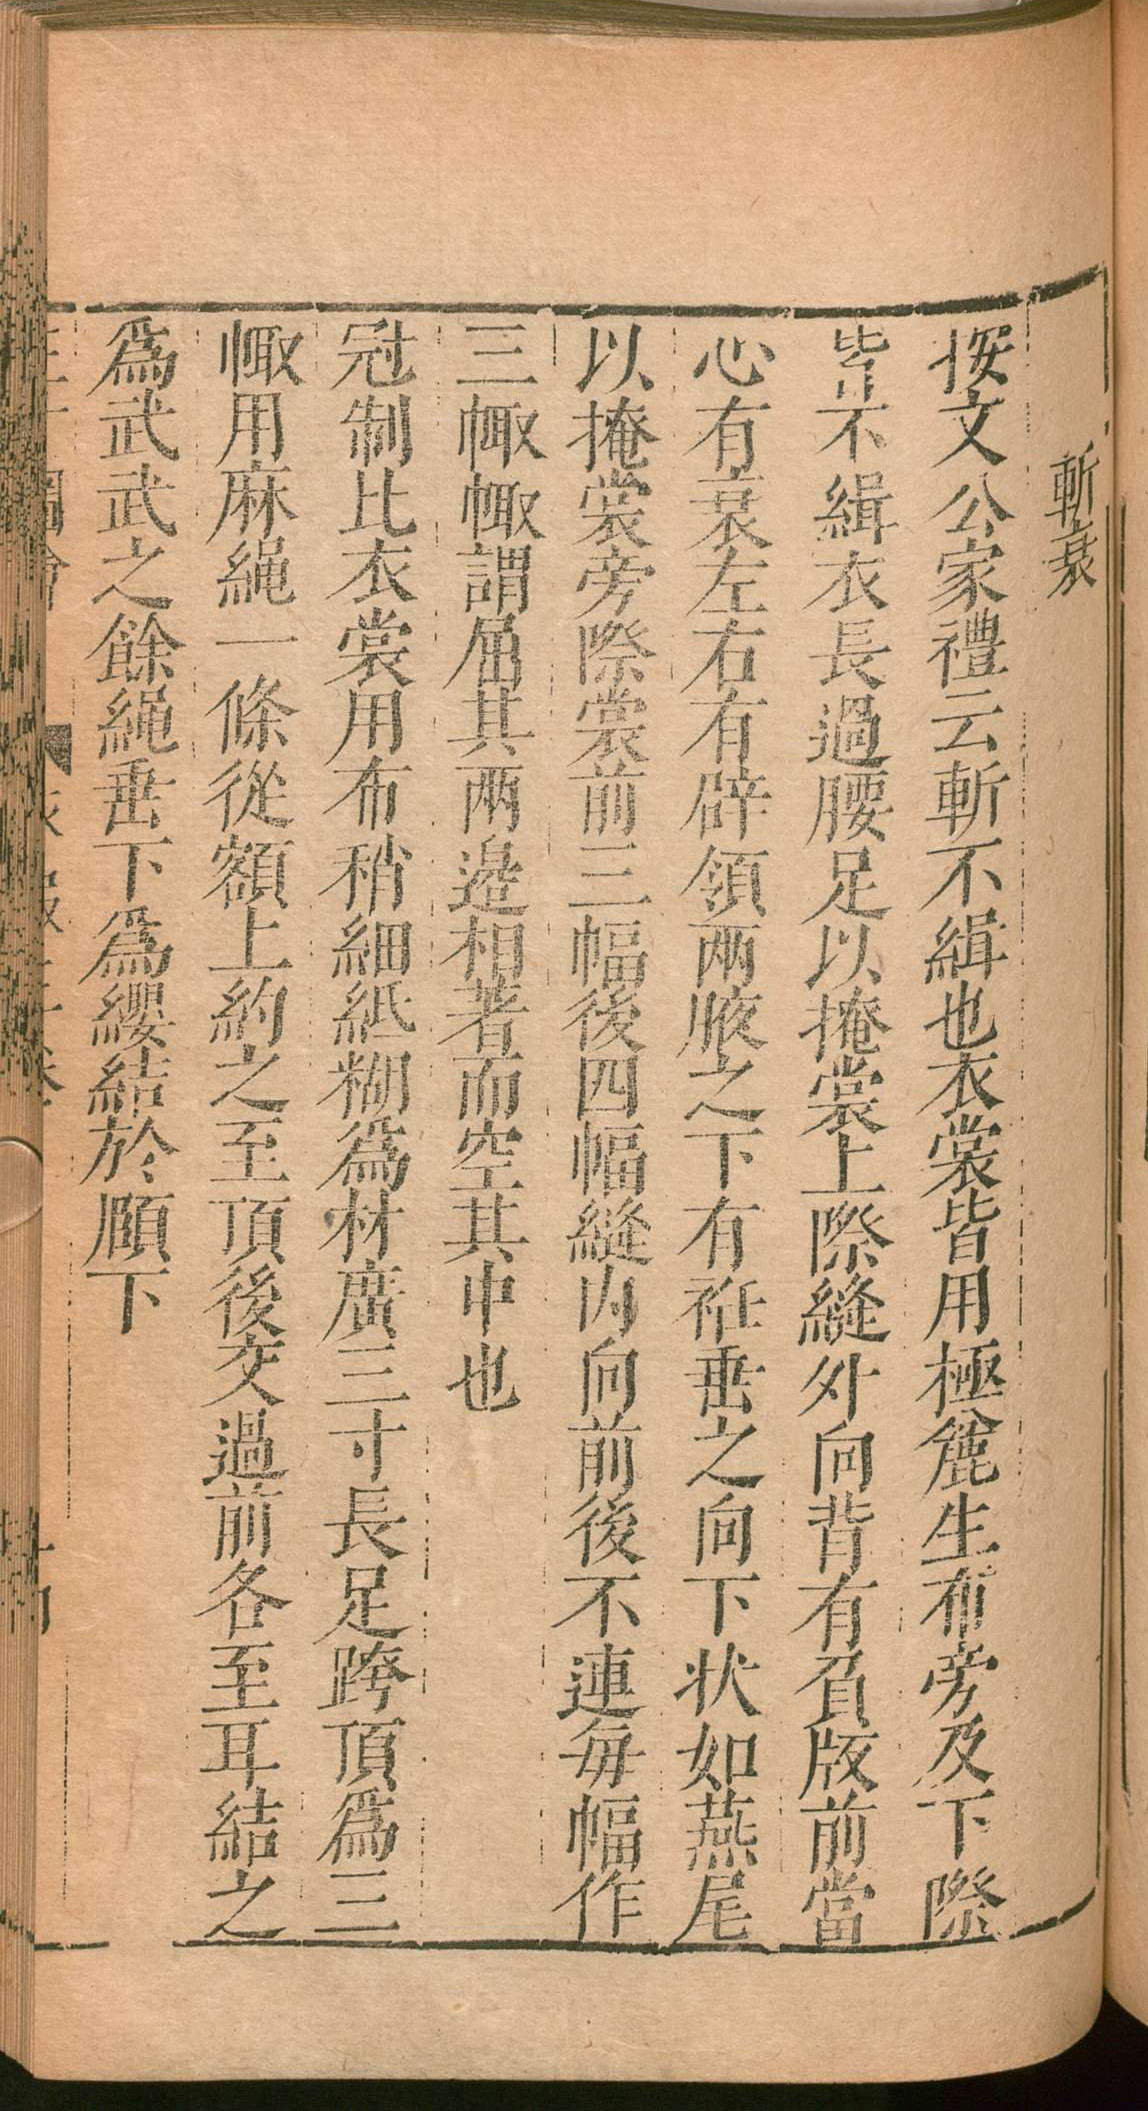 斬衰
按文公家禮云斬不緝也衣裳皆用極麄生布旁及下際
皆不緝衣長過腰足以掩裳上際縫外向背有負版前當
心有衰左右有辟領两腋之下有衽垂之向下状如燕尾
以掩裳旁際裳前三幅後四幅縫内向前後不連毎幅作
三㡇㡇謂屈其两邉相著而空其中也
冠制比衣裳用布稍細紙糊爲材廣三寸長足跨頂爲三
㡇用麻繩一條從額上約之至頂後交過前各至耳結之
爲武武之餘繩垂下爲纓結於頤下